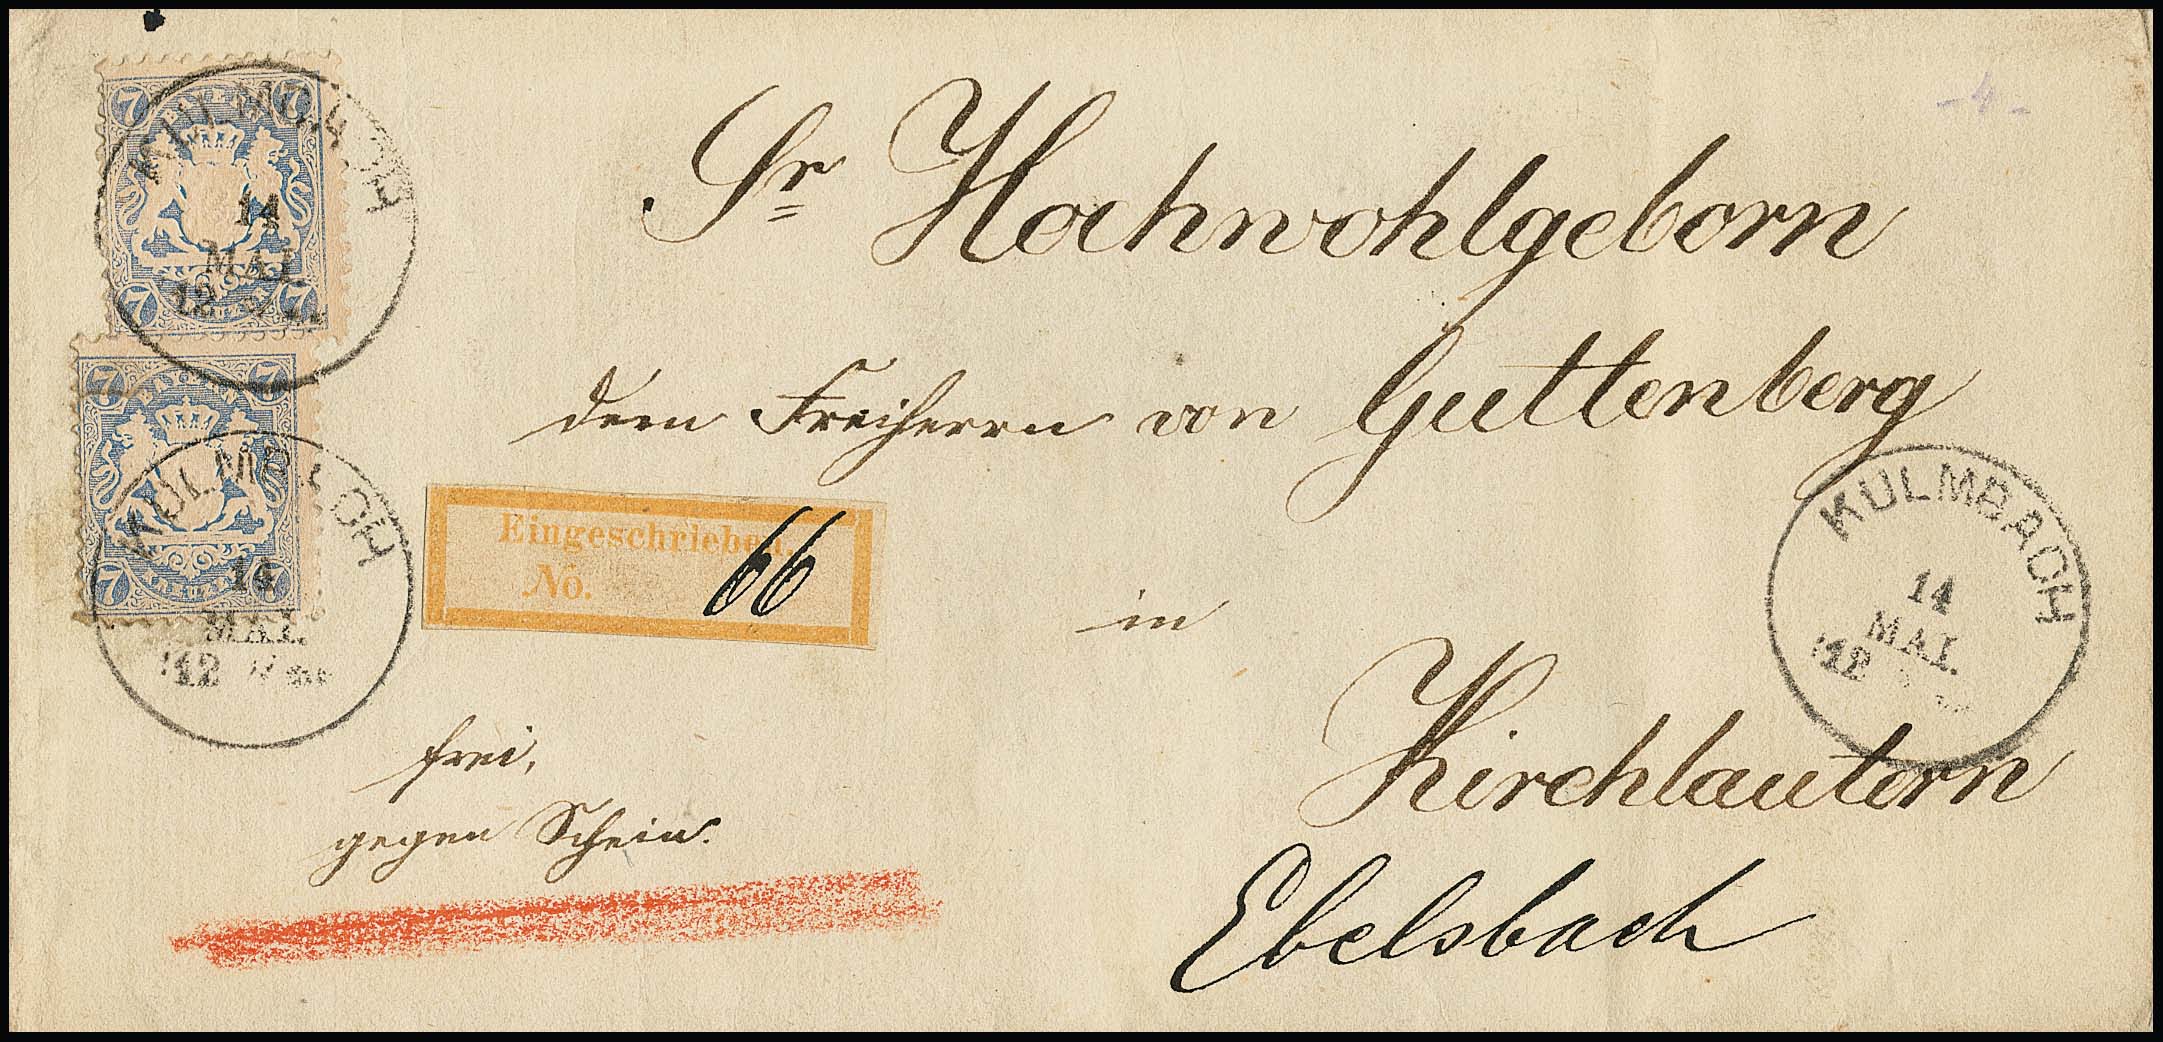 7 BAYERN 7
7 KREUZER 7
KULMBACH
14
MAI.
12
7 BAYERN 7
7 KREUZER 7
KULMBACH
14
MAI.
12
- 4 -
Sr Hochwohlgeborn
dem Freiherrn von Guttenberg
Eingeschrieben.
No. 66
in
KULMBACH
14
MAI.
12
Kirchlautern
Ebelsbach
frei,
gegen Schein.